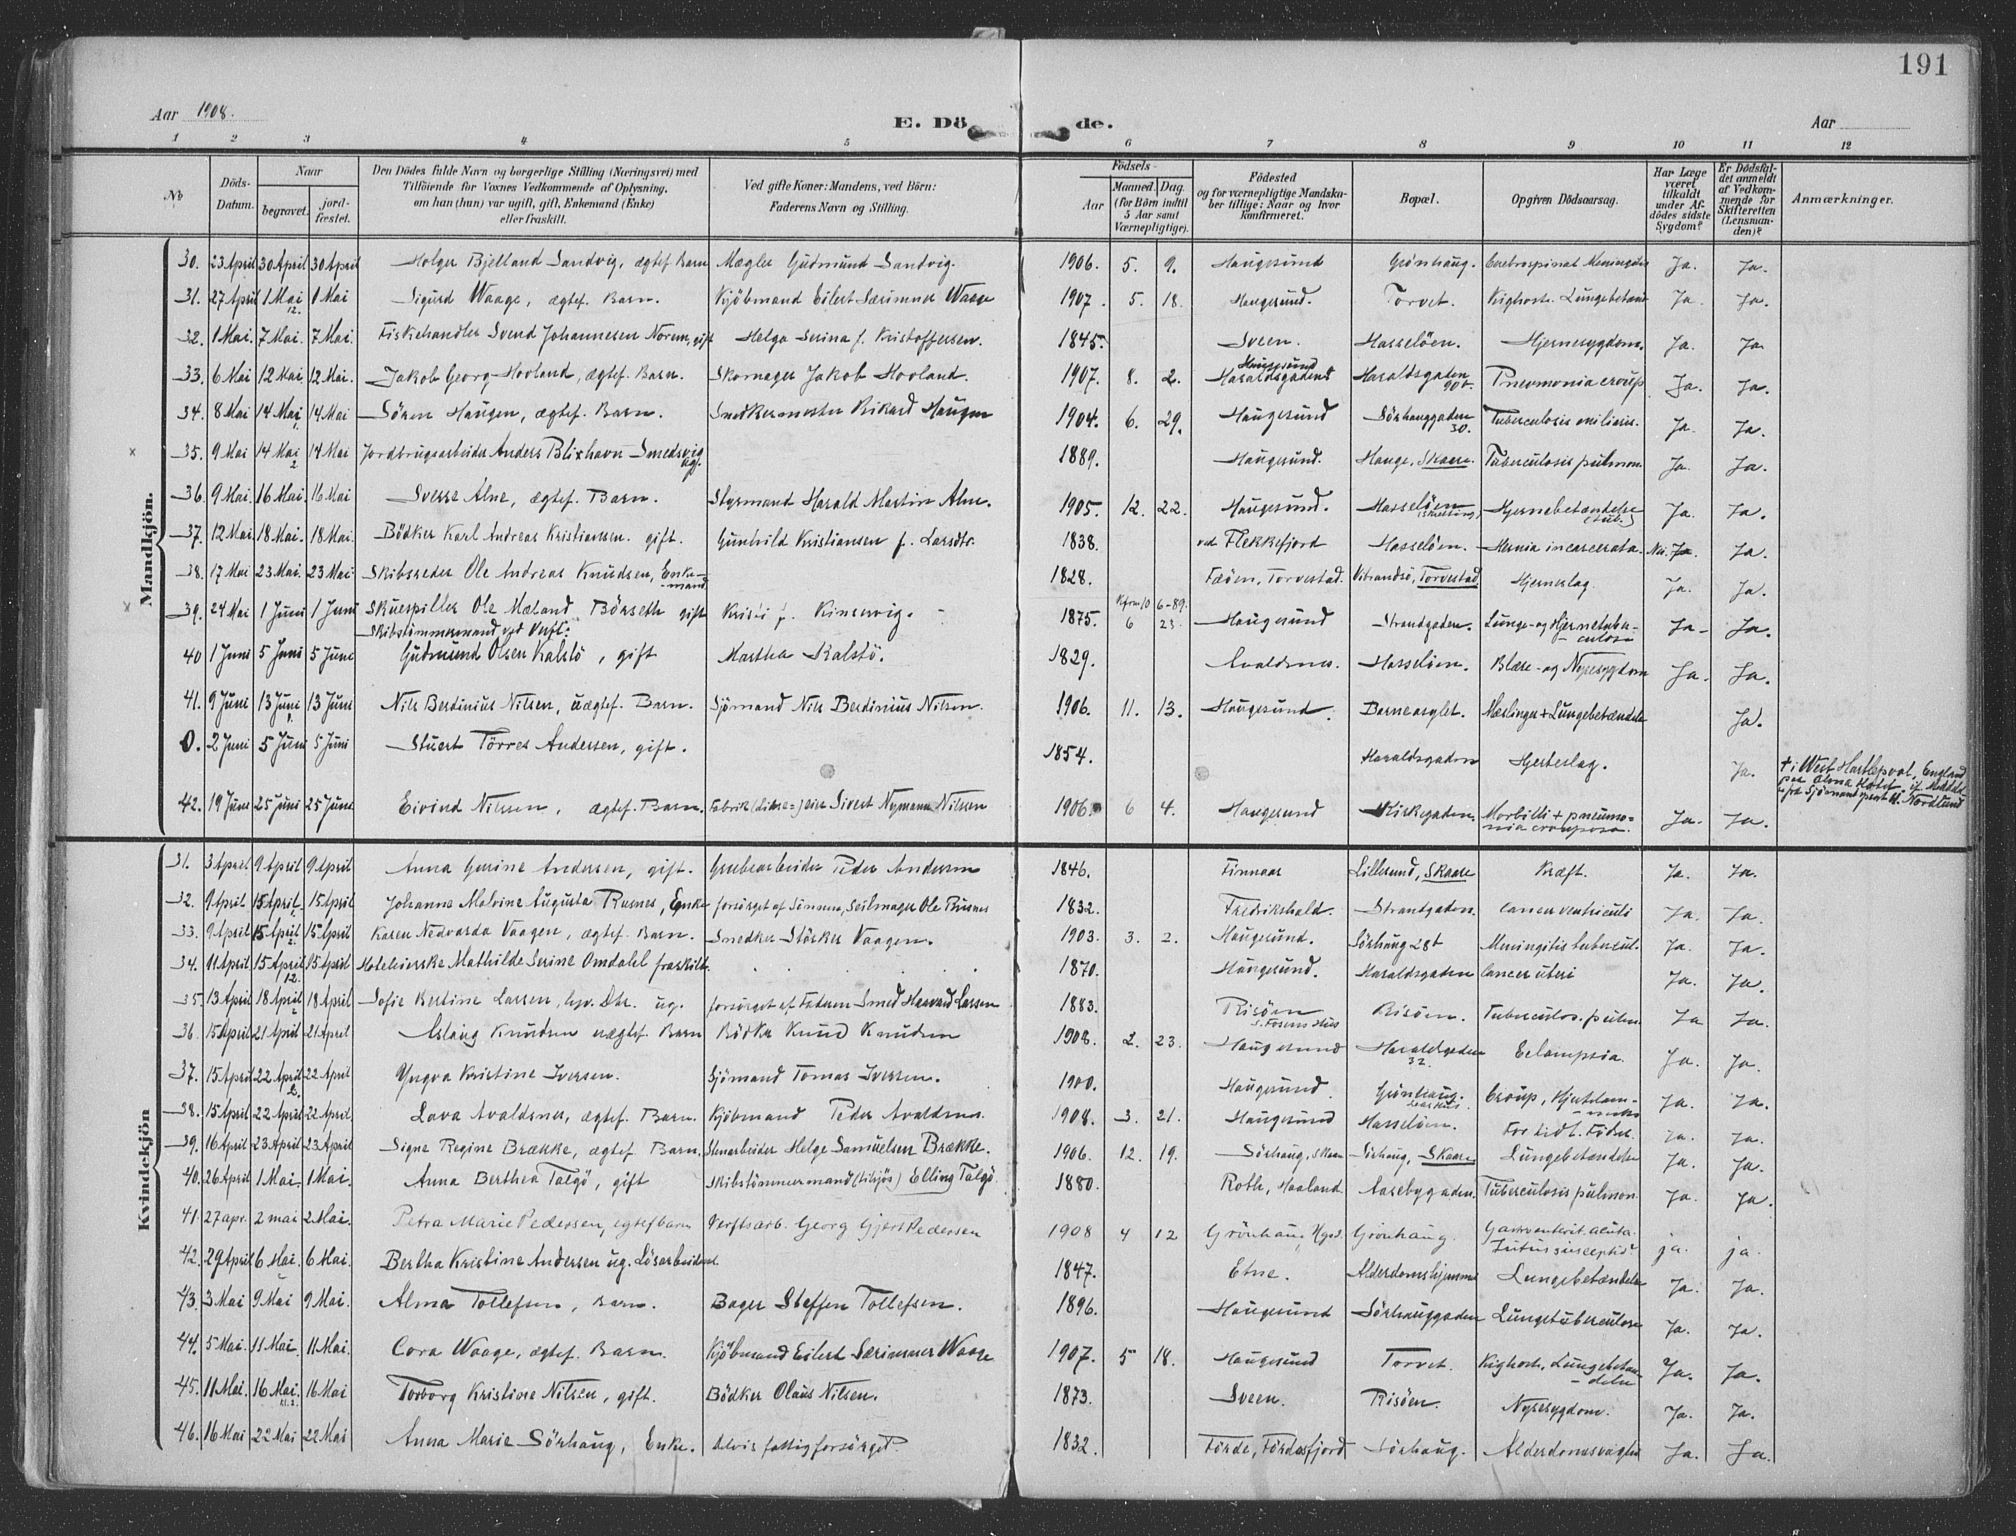 191
Aar 1908.
E. Döde.
Aar
1 2 3 4 5 6 7 8 9 10 11 12
No
Döds-Datum.
Naar
begravet.
jord-fæstet.
Den Dödes fulde Navn og borgerlige Stilling (Næringsvei) med
Tilföiende for Voxnes Vedkommende af Oplysning,
om han (hun) var ugift, gift, Enkemand (Enke)
eller fraskilt.
Ved gifte Koner: Mandens, ved Börn:
Faderens Navn og Stilling.
Födsels-
Aar
Maaned. Dag.
(for Börn indtil
5 Aar samt
Værnepligtige).
Födested
og for værnepligtige Mandska-
ber tillige: Naar og hvor
konfirmeret.
Bopæl.
Opgiven Dödsaarsag.
Har Læge
været
tilkaldt
under Af-
dödes sidste
Sygdom?
Er Dödsfal-
det anmeldt
af Vedkom-
mende for
Skifteretten
(Lensman-
den)?
Anmærkninger.
Mandkjön.
30. 23 April 30 April 30 April Holger Bjelland Sandvig, ægtef. Barn Mægler Gudmund Sandvig. 1906. 5. 9. Haugesund Grønhaug. Cerebrospinal Meningitis Ja. Ja.
31. 27 April 1 Mai 1 Mai Sigurd Waage, ægtef. Barn. Kjöbmand Eilert Særimner Waage 1907. 5. 18. Haugesund. Torvet. Kighoste. Lungebetænd Ja. Ja.
32. 1 Mai. 7 Mai. 7 Mai. Fiskehandler Svend Johannesen Norem, gift Helga Serina f. Kristoffersen. 1845. Sveen. Hasselöen. Hjernesygdom. Ja. Ja
33. 6 Mai 12 Mai. 12 Mai. Jakob Georg Hovland, ægtef. Barn. Skomager Jakob Hovland. 1907. 8. 2. Haugesund Haraldsgaden 90b. Pneumonia croup. Ja. Ja.
34. 8 Mai 14 Mai 14 Mai Sören Haugen, ægtef. Barn. Snedkermester Rikard Haugen 1904. 6. 29. Haugesund Sörhauggaden 30. Tuberculosis miliaris. Ja. Ja.
35. 9 Mai 14 Mai 14 Mai Jordbrugsarbeider Anders Blixhavn Smedsvig ug. 1889. Haugesund. Hauge, Skaare. Tuberculosis pulmon. Ja. Ja.
36. 9 Mai. 16 Mai. 16 Mai Sverre Alne, ægtef. Barn. Styrmand Harald Martin Alne. 1905. 12. 22. Haugesund. Hasselöen Hjernebetændelse (tub.) Ja. Ja.
37. 12 Mai 18 Mai. 18 Mai. Bödker Karl Andreas Kristiansen. gift. Gunhild Kristiansen f. Larsdtr. 1838. ved Flekkefjord Hasselöen. Hernia incarcerata. Nei. Ja. Ja.
38. 17 Mai 23 Mai. 23 Mai. Skibsreder Ole Andreas Knudsen, Enkemand 1828. Fæöen, Torvestad. Vibrandsö, Torvestad Hjerneslag. Ja. Ja.
39. 24 Mai 1 Juni 1 Juni Skuespiller Ole Mæland Börseth gift Kristi f. Kinservig. 1875. Kfrm 10 6-89. 6 23. Haugesund Strandgaden. Lunge- og Hjernetuberculose Ja. Ja.
Skibstömmermand ved Verft:
40 1 Juni 5 Juni 5 Juni Gudmund Olsen Kalstö, gift Martha Kalstö. 1829. Avaldsnes. Hasselöen. Blære- og Nyresygdom Ja. Ja.
41. 9 Juni 13 Juni 13 Juni Nils Berdinius Nilsen, uægtef. Barn. Sjömand Nils Berdinius Nilsen. 1906. 11. 13. Haugesund. Barneasylet. Mæslinger + Lungebetændelse Ja.
0. 2 Juni 5 Juni 5 Juni Stuert Törres Andersen, gift. 1854. Haraldsgaden Hjerteslag. Ja. † i West Hartlepool, England
fra Sjömandsprest H. Nordlund
42. 19 Juni 25 Juni 25 Juni Eivind Nilsen, ægtef. Barn. Sivert Nymann Nilsen 1906. 6 4. Haugesund Kirkegaden. Morbilli + pneumonia crouposa. Ja. Ja.
Kvindekjön
31. 3 April 9 April 9 April Anna Gurine Andersen, gift. Grubearbeider Peder Andersen 1846. Finnaas Lillesund, Skaare Kræft. Ja. Ja.
32. 9 April. 15 April. 15 April Johanne Malvine Augusta Rusnes, Enke forsörget af Sönnen, Seilmager Ole Rusnes 1832. Fredrikshald. Strandgaden. Cancer ventriculi Ja. Ja.
33. 9 April 15 April 15 April Karen Nedvarda Vaagen, ægtef. Barn. Snedker Störker Vaagen. 1903. 3. 2. Haugesund. Sörhaug 28b Meningitis tubercul. Ja. Ja.
34. 11 April 15 April 15 April Hoteleierske Mathilde Serine Omdahl fraskilt. 1870. Haugesund. Haraldsgaden Cancer uteri Ja. Ja.
35. 13 April 18 April 18 April Sofie Bertine Larsen, hjv. Dtr. ug. forsörget af Faderen Smed Haavard Larsen 1883. Risöen Risöen. Tuberculos. pulm. Ja Ja.
36. 15 April 21 April 21 April Aslaug Knudsen uægtef. Barn Bödker Knud Knudsen 1908. 2. 23. Haugesund Haraldsgaden 32. Eclampsia. Ja. Ja.
37. 15 April 22 April 22 April Yngva Kristine Iversen. Sjömand Tomas Iversen. 1900. Haugesund Grönhaug. Croup, Ja. Ja.
38. 15 April 22 April 22 April Lava Avaldsnes, ægtef. Barn. Kjöbmand Peder Avaldsnes. 1908. 3. 21. Haugesund Hasselöen. For tidl. Födsl. Ja. Ja.
39. 16 April 23 April 23 April Signe Regine Brække, ægtef. Barn. Stenarbeider Helge Samuelsen Brække. 1906. 12. 19. Sörhaug, Skaare Sörhaug, Skaare Lungebetændelse Ja. Ja.
40. 26 April 1 Mai. 1 Mai. Anna Berthea Talgö, gift Skibstömmermand (tilsjös) Elling Talgö. 1880. Aasebygaden. Tuberculosis pulmon. Ja. Ja.
41. 27 apr. 2 mai 2 Mai. Petra Marie Pedersen, egtef barn Verftsarb. Georg Gjert Pedersen 1908 4 12 Grönhaug, Hgsd. Grönhaug. Gastroenterit. acuta. ja. ja.
42. 29 April 6 Mai. 6 Mai. Bertha Kristine Andersen ug. Lösarbeidersk 1847. Etne. Alderdomshjemmet Lungebetændelse Ja. Ja.
43. 3 Mai 9 Mai 9 Mai. Alma Tollefsen, Barn. Bager Steffen Tollefsen. 1896. Haugesund Sörhauggaden Lungetuberculose Ja. Ja.
44. 5 Mai. 11 Mai. 11 Mai. Cora Waage, ægtef. Barn. Kjöbmand Eilert Særimner Waage 1907. 5 18. Haugesund Torvet. Kighoste, Lungebetændelse Ja. Ja.
45. 11 Mai. 16 Mai. 16 Mai Torborg Kristine Nilsen, gift. Bödker Olaus Nilsen. 1873. Sveen. Risöen. Nyresygdom. Ja. Ja.
46. 16 Mai 22 Mai 22 Mai Anna Marie Sörhaug, Enke. delvis fattigforsörget. 1832. Förde, Fördesfjord Sörhaug. Alderdomssvaghed Ja. Ja.